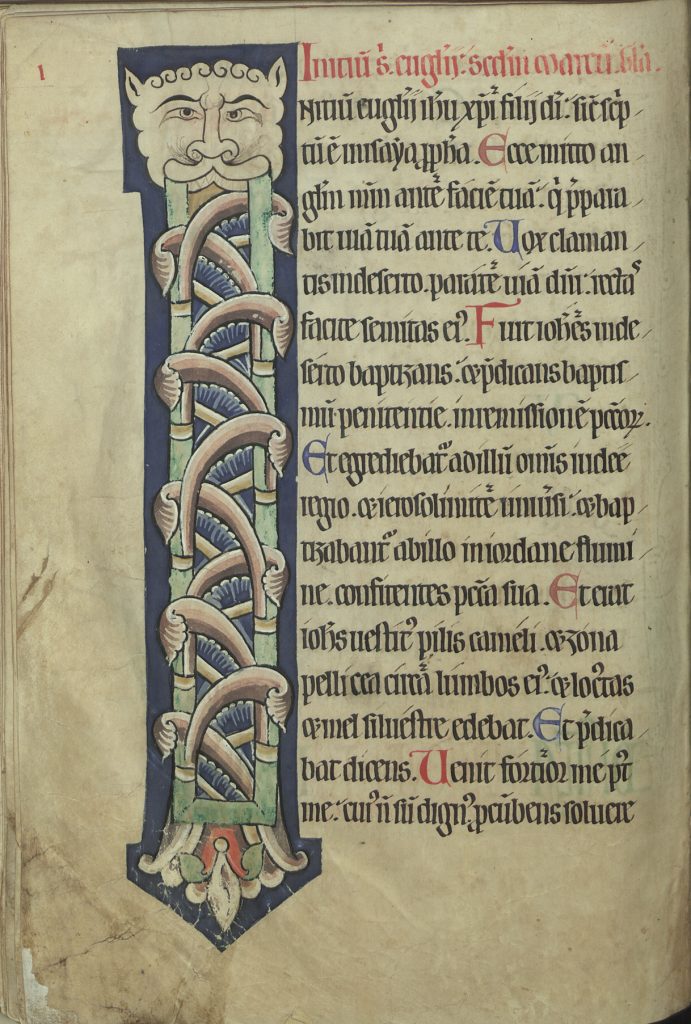 Initiū s̄. euglīj. scdm marcū.
NItiū euglīj ihū xp̄i filij dī: sic̄ scrip
tū ē in isaya ꝓpħa. Ecce mitto an
glm̄ m̄m ante faciē tuā. q̄ p̄para
bit uiā tuā ante te. Uox claman
tis in deserto. parate uiā dn̄i. recta͛
facite semitas ei᾽. Fuit ioħes in de
serto baptizans. et p̄dicans baptis
mū penitentie. in remissionē pccōꝝ.
Et egrediebat᾽ ad illū omīs iudee
regio. et ierosolimite uniuersi. et bap
tizabant᾽ ab illo in iordane flumi
ne. confitentes pccā sua. Et erat
ioħs uestit᾽ pilis cameli. et zona
pellicea circā lumbos ei᾽. et locustas
et mel siluestre edebat. Et p̄dica
bat dicens. Uenit fortior me p᾽t
me. cui᾽ n̄ sū dign᾽ ꝓcūbens soluere